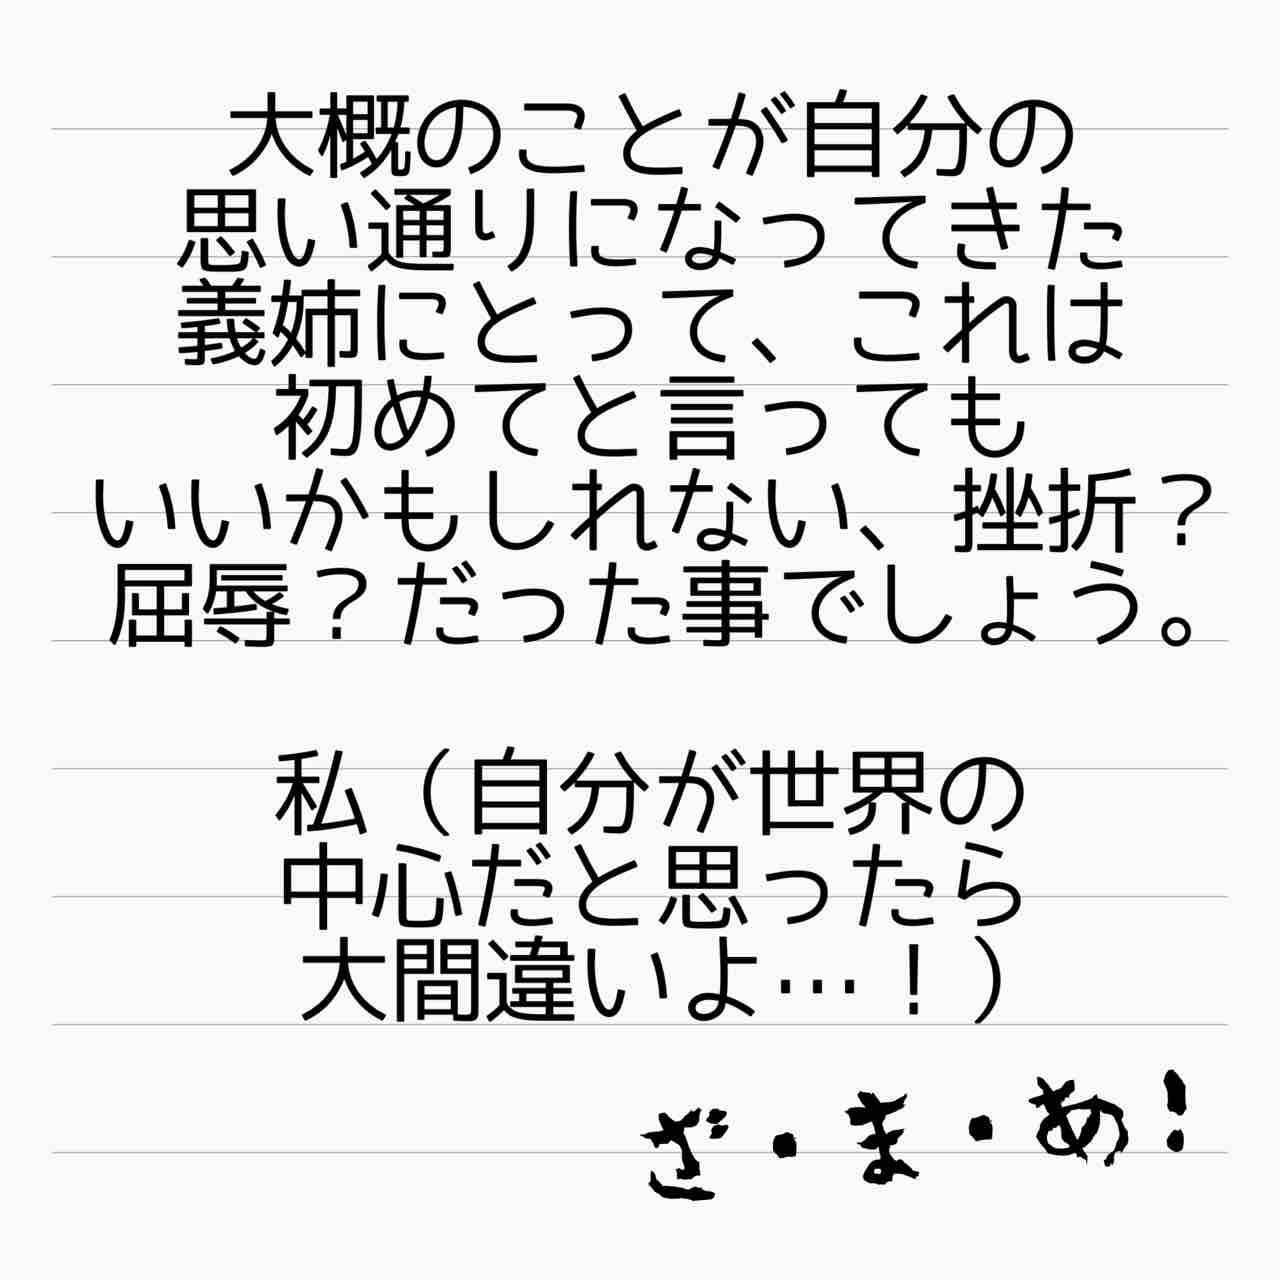 大概のことが自分の
思い通りになってきた
義姉にとって、これは
初めてと言っても
いいかもしれない、挫折？
屈辱？だった事でしょう。
私（自分が世界の
中心だと思ったら
大間違いよ…！）
ざ・ま・あ！